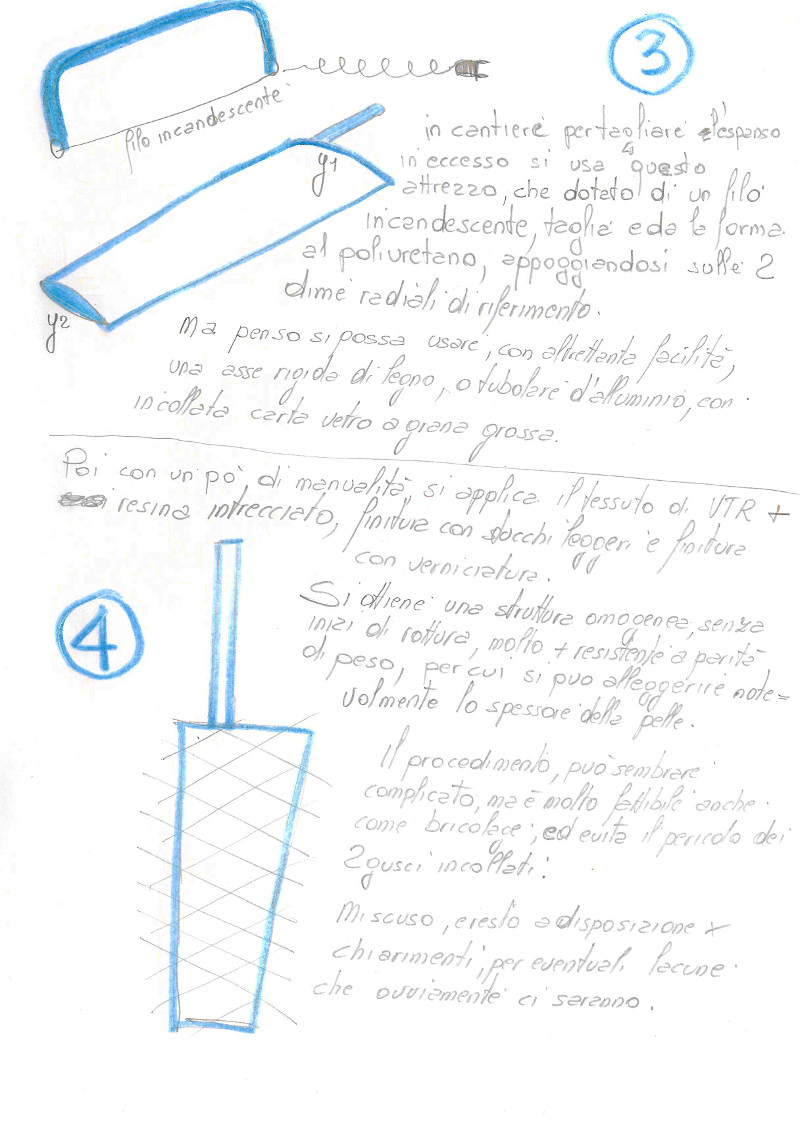 3
filo incandescente
y1
y2
in cantiere per tagliare l'espanso
in eccesso si usa questo
attrezzo, che dotato di un filo
incandescente, taglia e da la forma
al poliuretano, appoggiandosi sulle 2
dime radiali di riferimento.
Ma penso si possa usare, con altrettanta facilità,
una asse rigida di legno, o tubolare d'alluminio, con
incollata carta vetro a grana grossa.
Poi con un pò, di manualità, si applica il tessuto di VTR +
resina intrecciato, finitura con stucchi leggeri e finitura
con verniciatura.
4
Si ottiene una struttura omogenea, senza
inizi di rottura, molto + resistente a parità
di peso, per cui si può alleggerire note=
volmente lo spessore della pelle.
Il procedimento, può sembrare
complicato, ma è molto fattibile anche
come bricolage, ed evita il pericolo dei
2 gusci incollati!
Mi scuso, e resto a disposizione x
chiarimenti, per eventuali lacune
che ovviamente ci saranno.